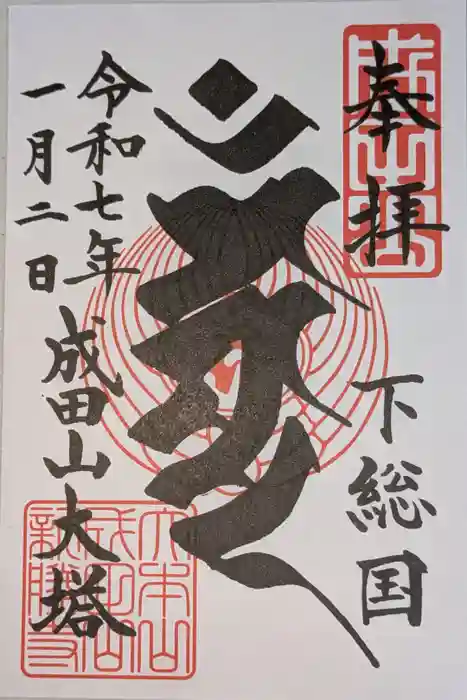 奉拝
下総国
令和七年
一月二日
成田山大塔
大本山
成田山
新勝寺